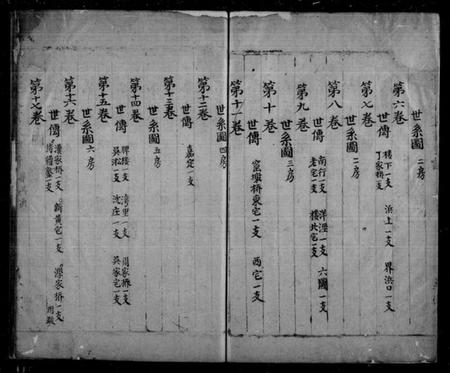 世系圖 二房
第六卷
世傳 樓下一支 浜上一支 界浜口一支
丁家橋一支
第七卷
世系圖 二房
第八卷
世傳 南行一支 洋涇一支 六圖一支
老宅一支 樓北宅一支
第九卷
世系圖 三房
第十卷
世傳 橋東宅一支 西宅一支
第十一卷
世系圖 四房
第十二卷
世傳 嘉定一支
第十三卷
世系圖 五房
第十四卷
世傳 一支 灣里一支 周家橋一支
吳淞一支 沈庄一支 吳家宅一支
第十五卷
世系圖 六房
第十六卷
世傳 潘家橋一支 新黃宅一支 潭家橋一支
一支
第十七卷